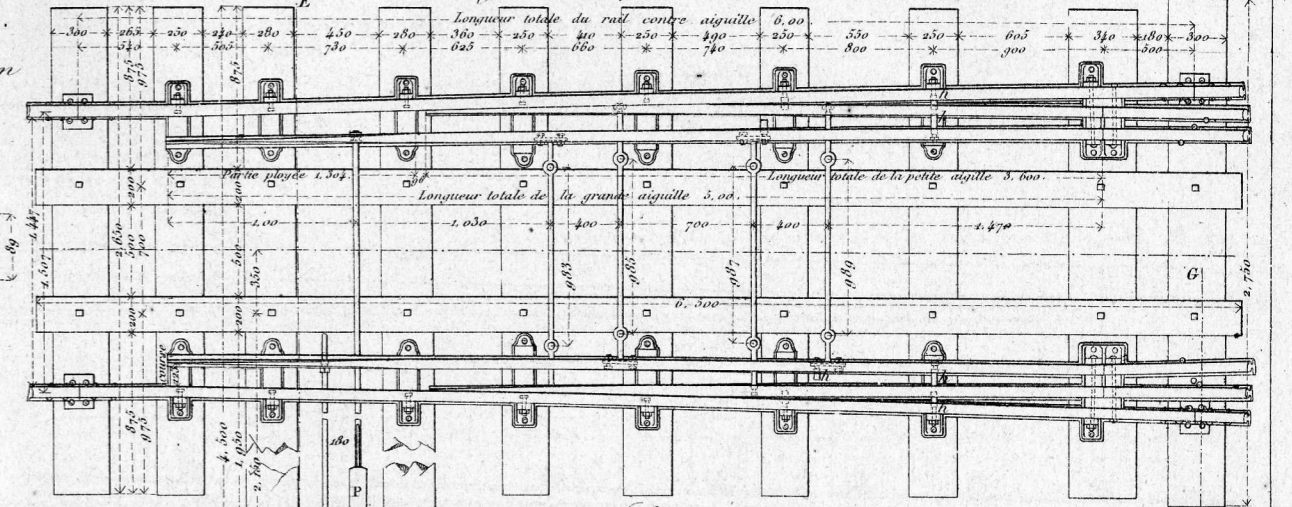 E
Longueur totale du rail contre aiguille 6,00.
300 265 250 240 280 450 280 360 250 410 250 490 250 550 250 605 340 180 300
540 505 730 625 660 740 800 900 500
875 975 875
n
h
h
Partie ployée 1,304. 90
Longueur totale de la petite aigille 3,600.
Longueur totale de la grande aiguille 5,00.
200 200
1,00 1,030 400 700 400 1,470
89 1,447 1,507 2,650 500 700 500 350 983 985 987 989 G 2,750
6,500
200 200 200
h h
h
875 975 4,500 1,950 2,100
180
P